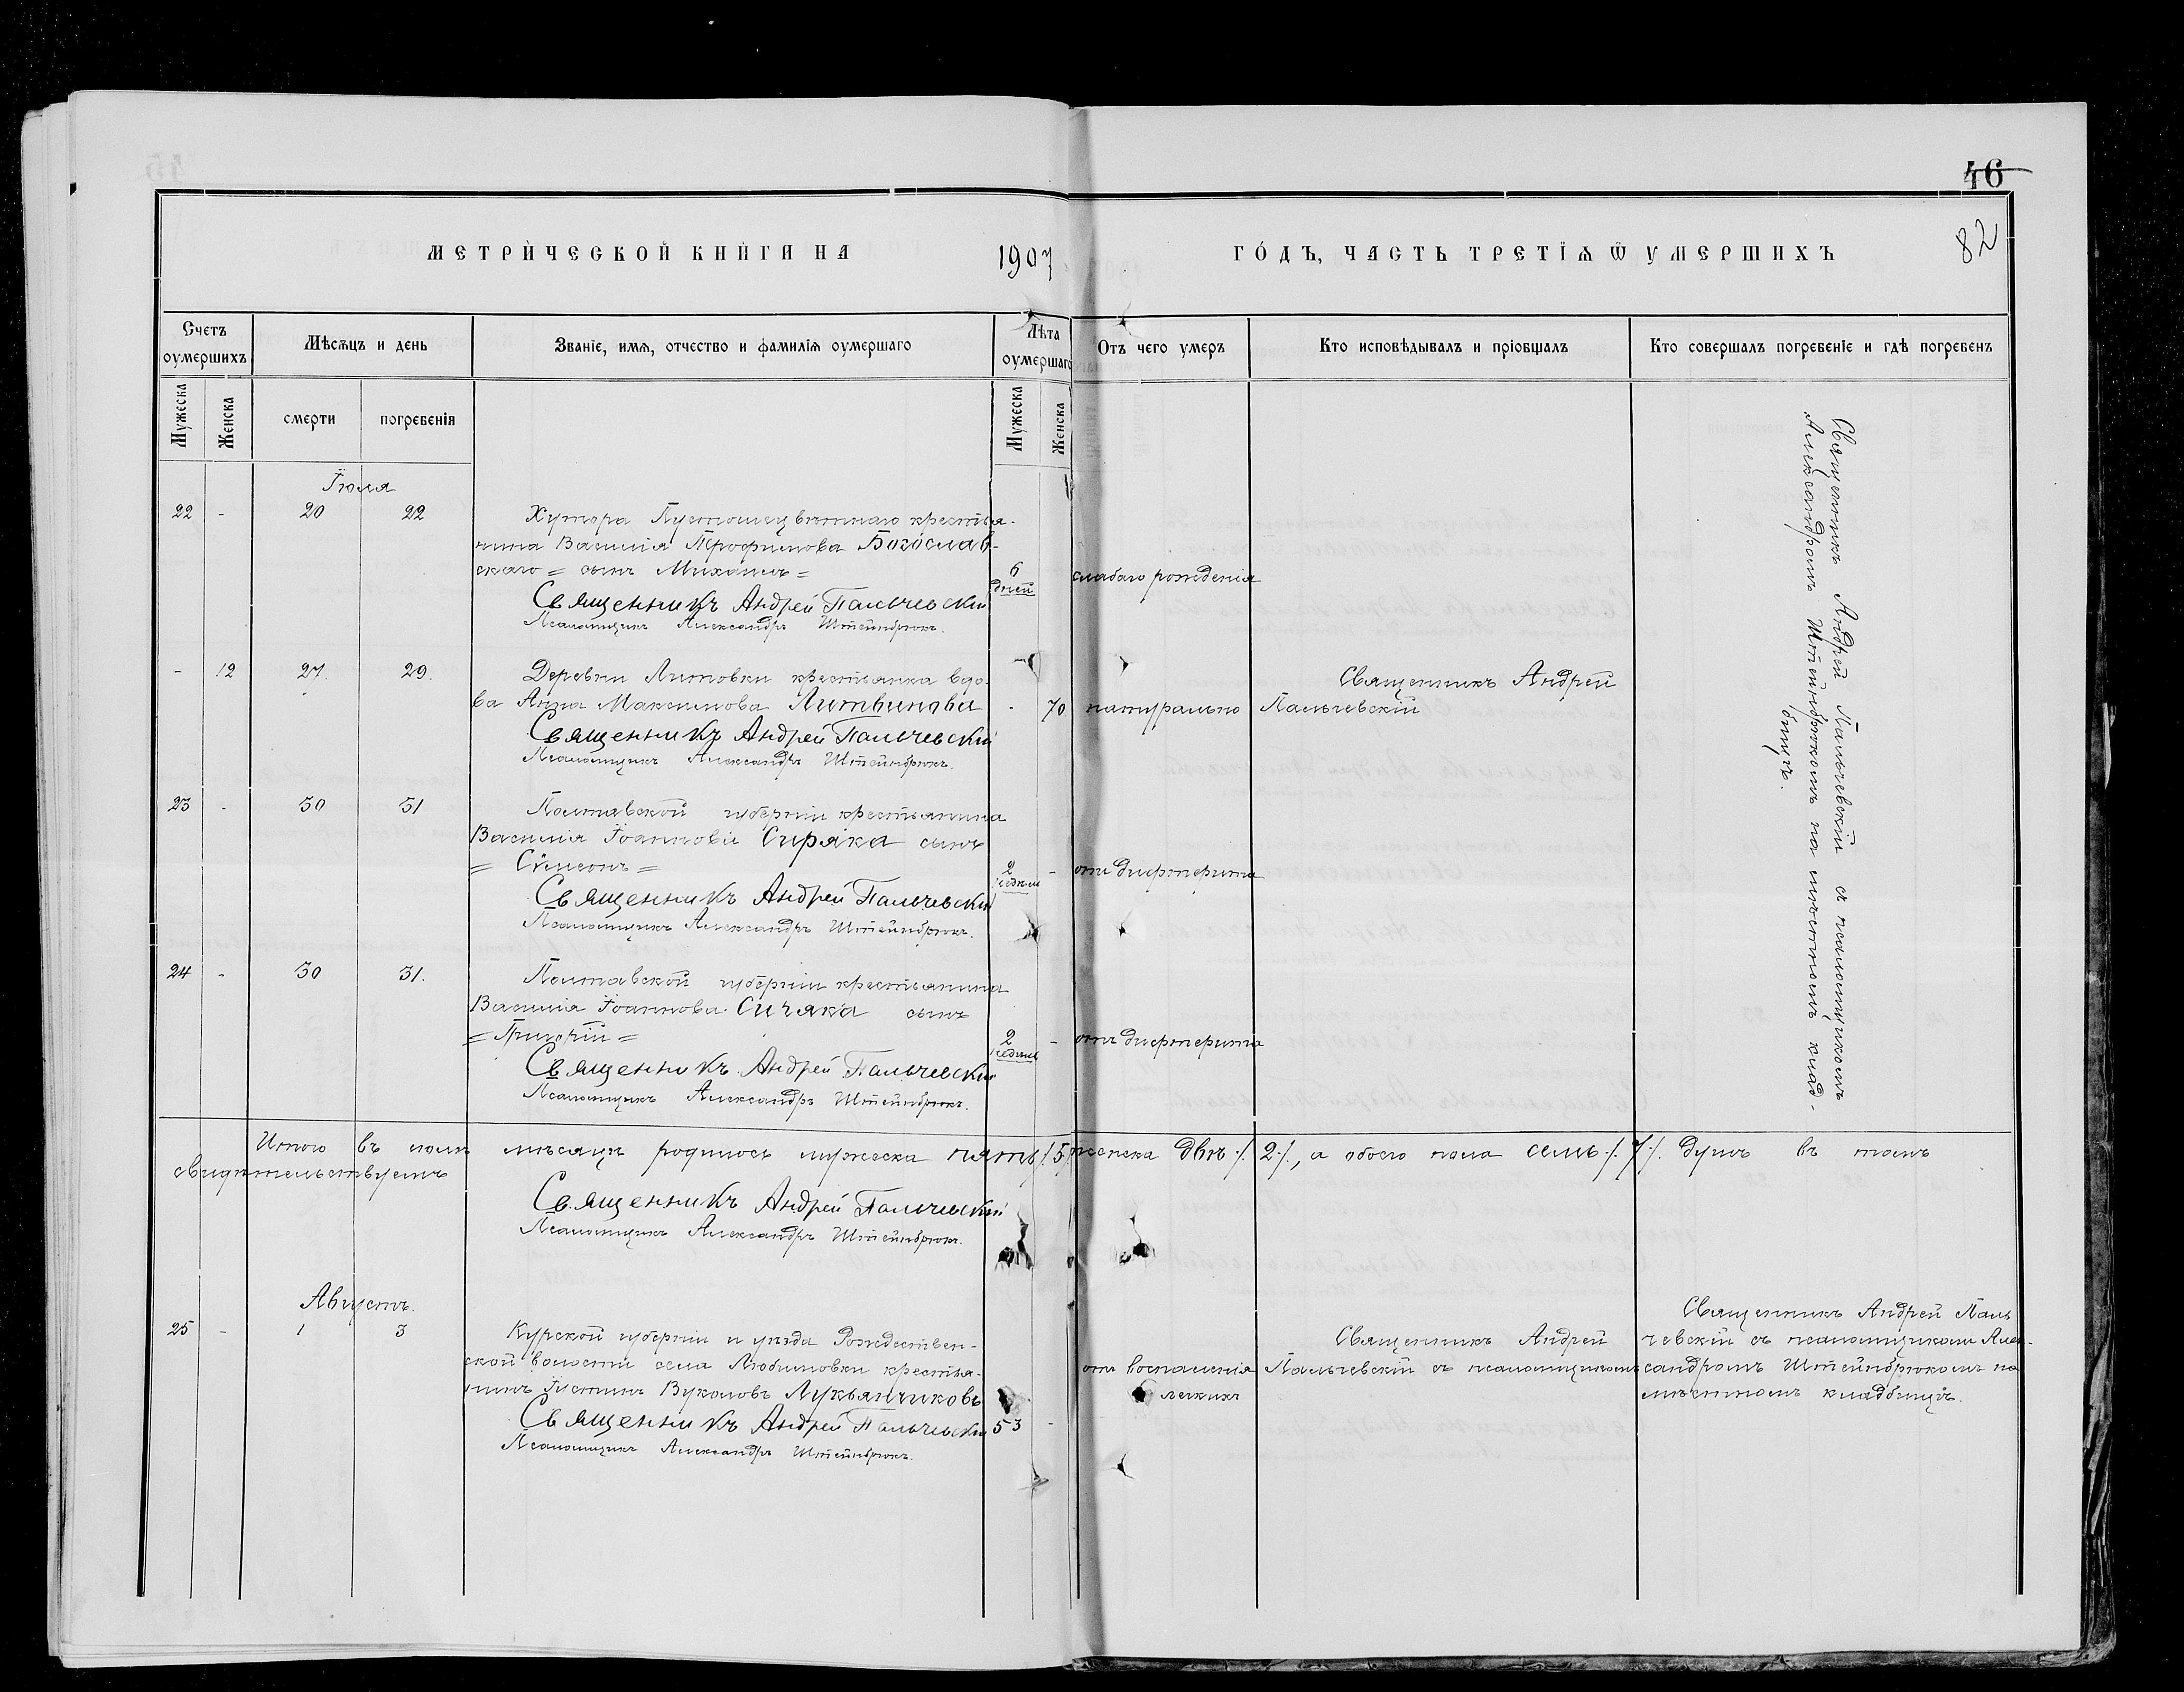 46
82
МЕТРИ́ЧЕСКОЙ КНИ́ГИ НА 1907 ГО́ДЪ, ЧАСТЬ ТРЕТІѦ Ѿ УМЕРШИХЪ
Счетъ оумершихъ
Мѣсѧцъ и день
Званіе, имѧ, отчество и фамилїѧ оумершаго
Лѣта оумершаго
Отъ чего умеръ
Кто исповѣдывалъ и прїобщалъ
Кто совершалъ погребенїе и гдѣ погребенъ
Мужеска
Женска
смерти
погребенїя
Мужеска
Женска
Іюля
22 - 20 22
Хутора Пустошецвѣтнаго крестья-
нина Василія Трофимова Богослав-
скаго = сынъ Михаилъ =
6 дней
слабаго рожденія
Священникъ Андрей Пальчевскій
Псаломщикъ Александръ Штейнбрюкъ.
- 12 27. 29.
Деревни Литовки крестьянка вдо-
ва Анна Максимова Литвинова
- 70
натурально
Священникъ Андрей
Пальчевскій
Священникъ Андрей Пальчевскій
Псаломщикъ Александръ Штейнбрюкъ.
23 - 30 31
Полтавской губерніи крестьянина
Василія Іоаннова Сиряка сынъ
= Сѵмеонъ =
2 недѣли -
отъ дифтерита
Священникъ Андрей Пальчевскій
Псаломщикъ Александръ Штейнбрюкъ.
24 - 30 31.
Полтавской губерніи крестьянина
Василія Іоаннова сынъ
= Григорій =
2 недѣли -
отъ дифтерита
Священникъ Андрей Пальчевскій
Псаломщикъ Александръ Штейнбрюкъ.
Священникъ Андрей Пальчевскій съ псаломщикомъ
Александромъ Штейнбрюкомъ на мѣстномъ клад-
бищѣ.
Итого въ іюлѣ мѣсяцѣ родилось мужеска пять /.5./ женска двѣ ./.2./., а обоего пола семь ./.7./. душъ въ томъ
свидѣтельствуемъ
Священникъ Андрей Пальчевскій
Псаломщикъ Александръ Штейнбрюкъ.
Августъ.
25 - 1 3
Курской губерніи и уѣзда Рождествен-
ской волости села Любимовки крестья-
нинъ Іустинъ Вуколовъ Лукьянчиковъ
53 -
отъ воспаленія
легкихъ
Священникъ Андрей
Пальчевскій съ псаломщикомъ
Священникъ Андрей Паль
чевскій съ псаломщикомъ Алек-
сандромъ Штейнбрюкомъ на
мѣстномъ кладбищѣ.
Священникъ Андрей Пальчевскій
Псаломщикъ Александръ Штейнбрюкъ.